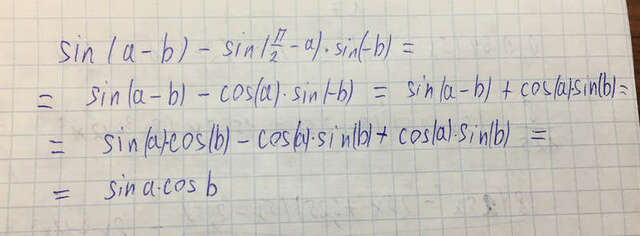 sin(a-b) - sin(π/2 - a)·sin(-b) =
= sin(a-b) - cos(a)·sin(-b) = sin(a-b) + cos(a)·sin(b) =
= sin(a)·cos(b) - cos(a)·sin(b) + cos(a)·sin(b) =
= sin a·cos b